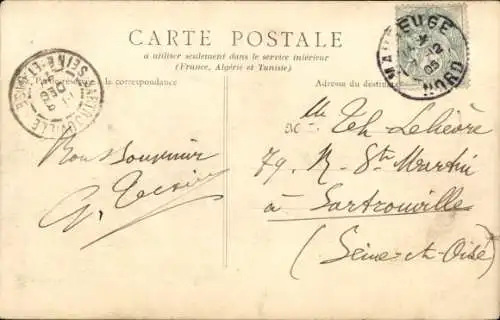 CARTE POSTALE
à utiliser seulement dans le service intérieur
(France, Algérie et Tunisie)
Partie réservée à la correspondance
Adresse du destinataire
MAUBEUGE
12
05
NORD
SARTROUVILLE
SEINE-ET-OISE
Bon Souvenir
G.
Mlle Th. Lelièvre
79, R. St Martin
à Sartrouville
(Seine-et-Oise)